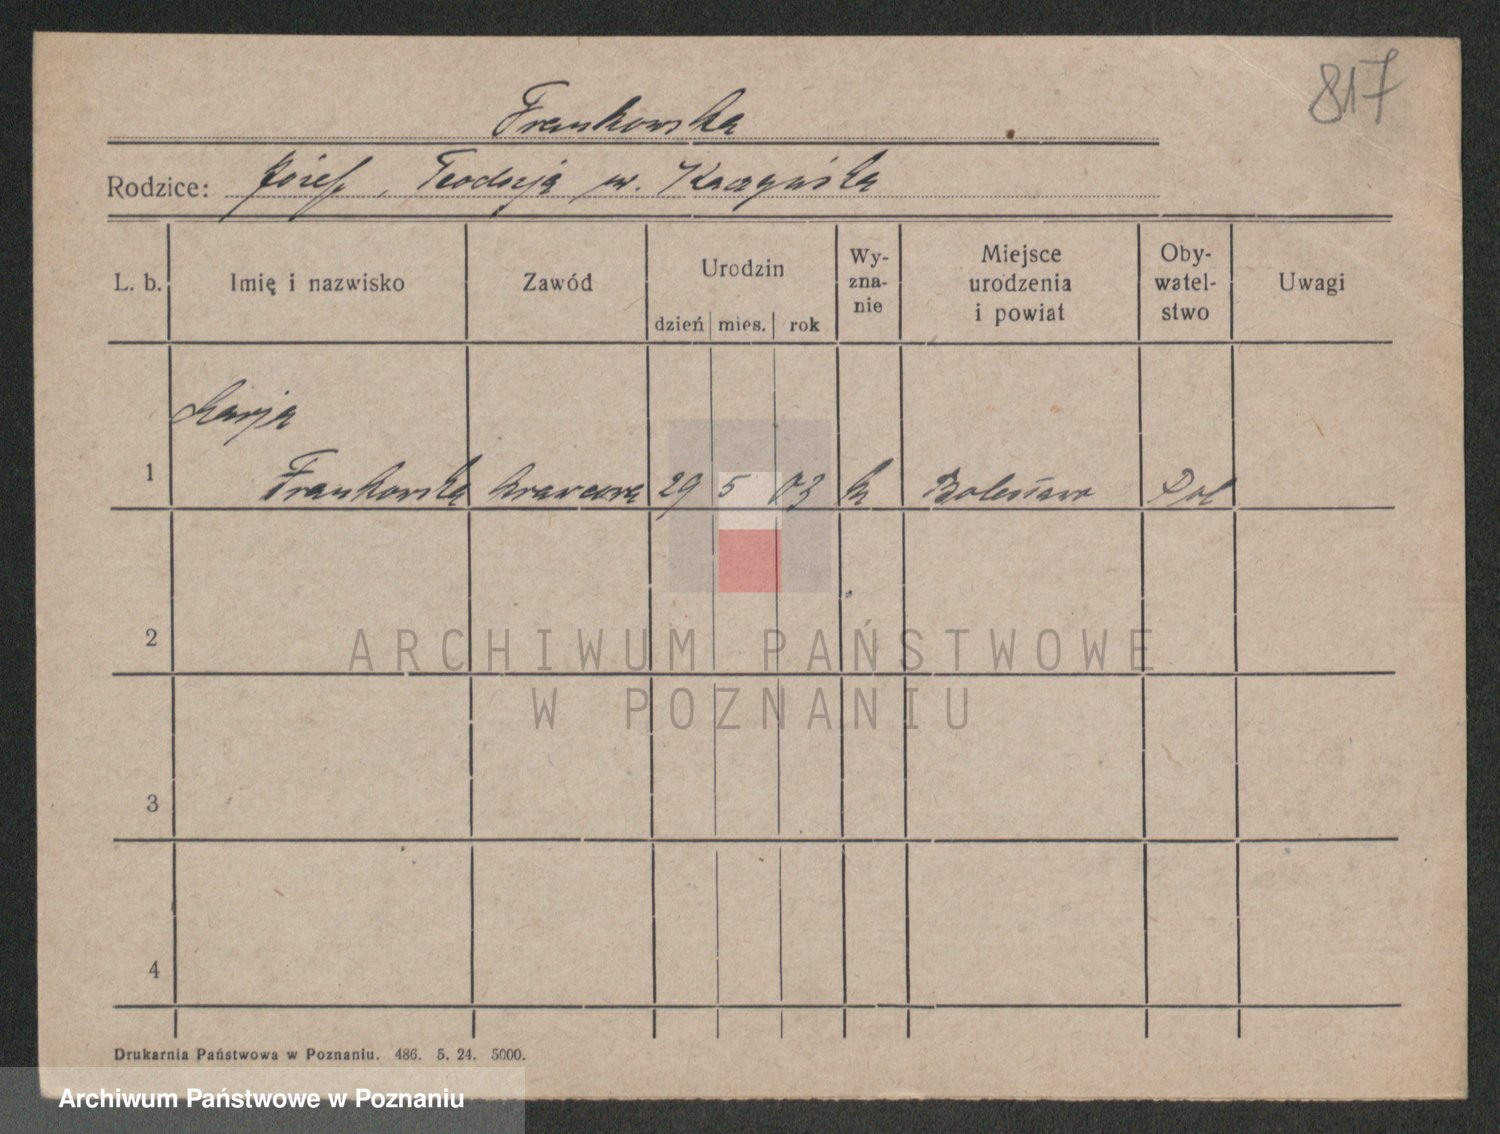 817
Frankowska
Rodzice: Józef, Teodozja w. Kaczyńska
L. b.
Imię i nazwisko
Zawód
Urodzin
dzień mies. rok
Wy-
zna-
nie
Miejsce
urodzenia
i powiat
Oby-
watel-
stwo
Uwagi
Marja
1 Frankowska krawcowa 29 5 03 k Pol
2
ARCHIWUM PAŃSTWOWE
W POZNANIU
3
4
Drukarnia Państwowa w Poznaniu. 486. 5. 24. 5000.
Archiwum Państwowe w Poznaniu